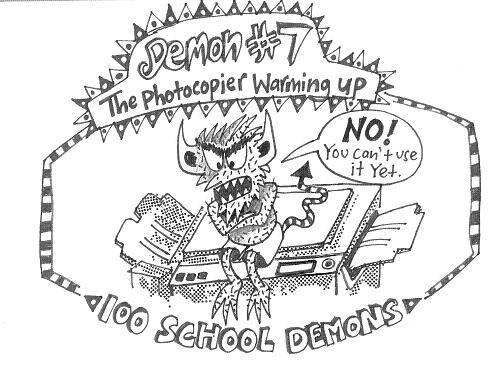 Demon #7
The Photocopier Warming up
NO!
You can't use
it Yet.
100 SCHOOL DEMONS